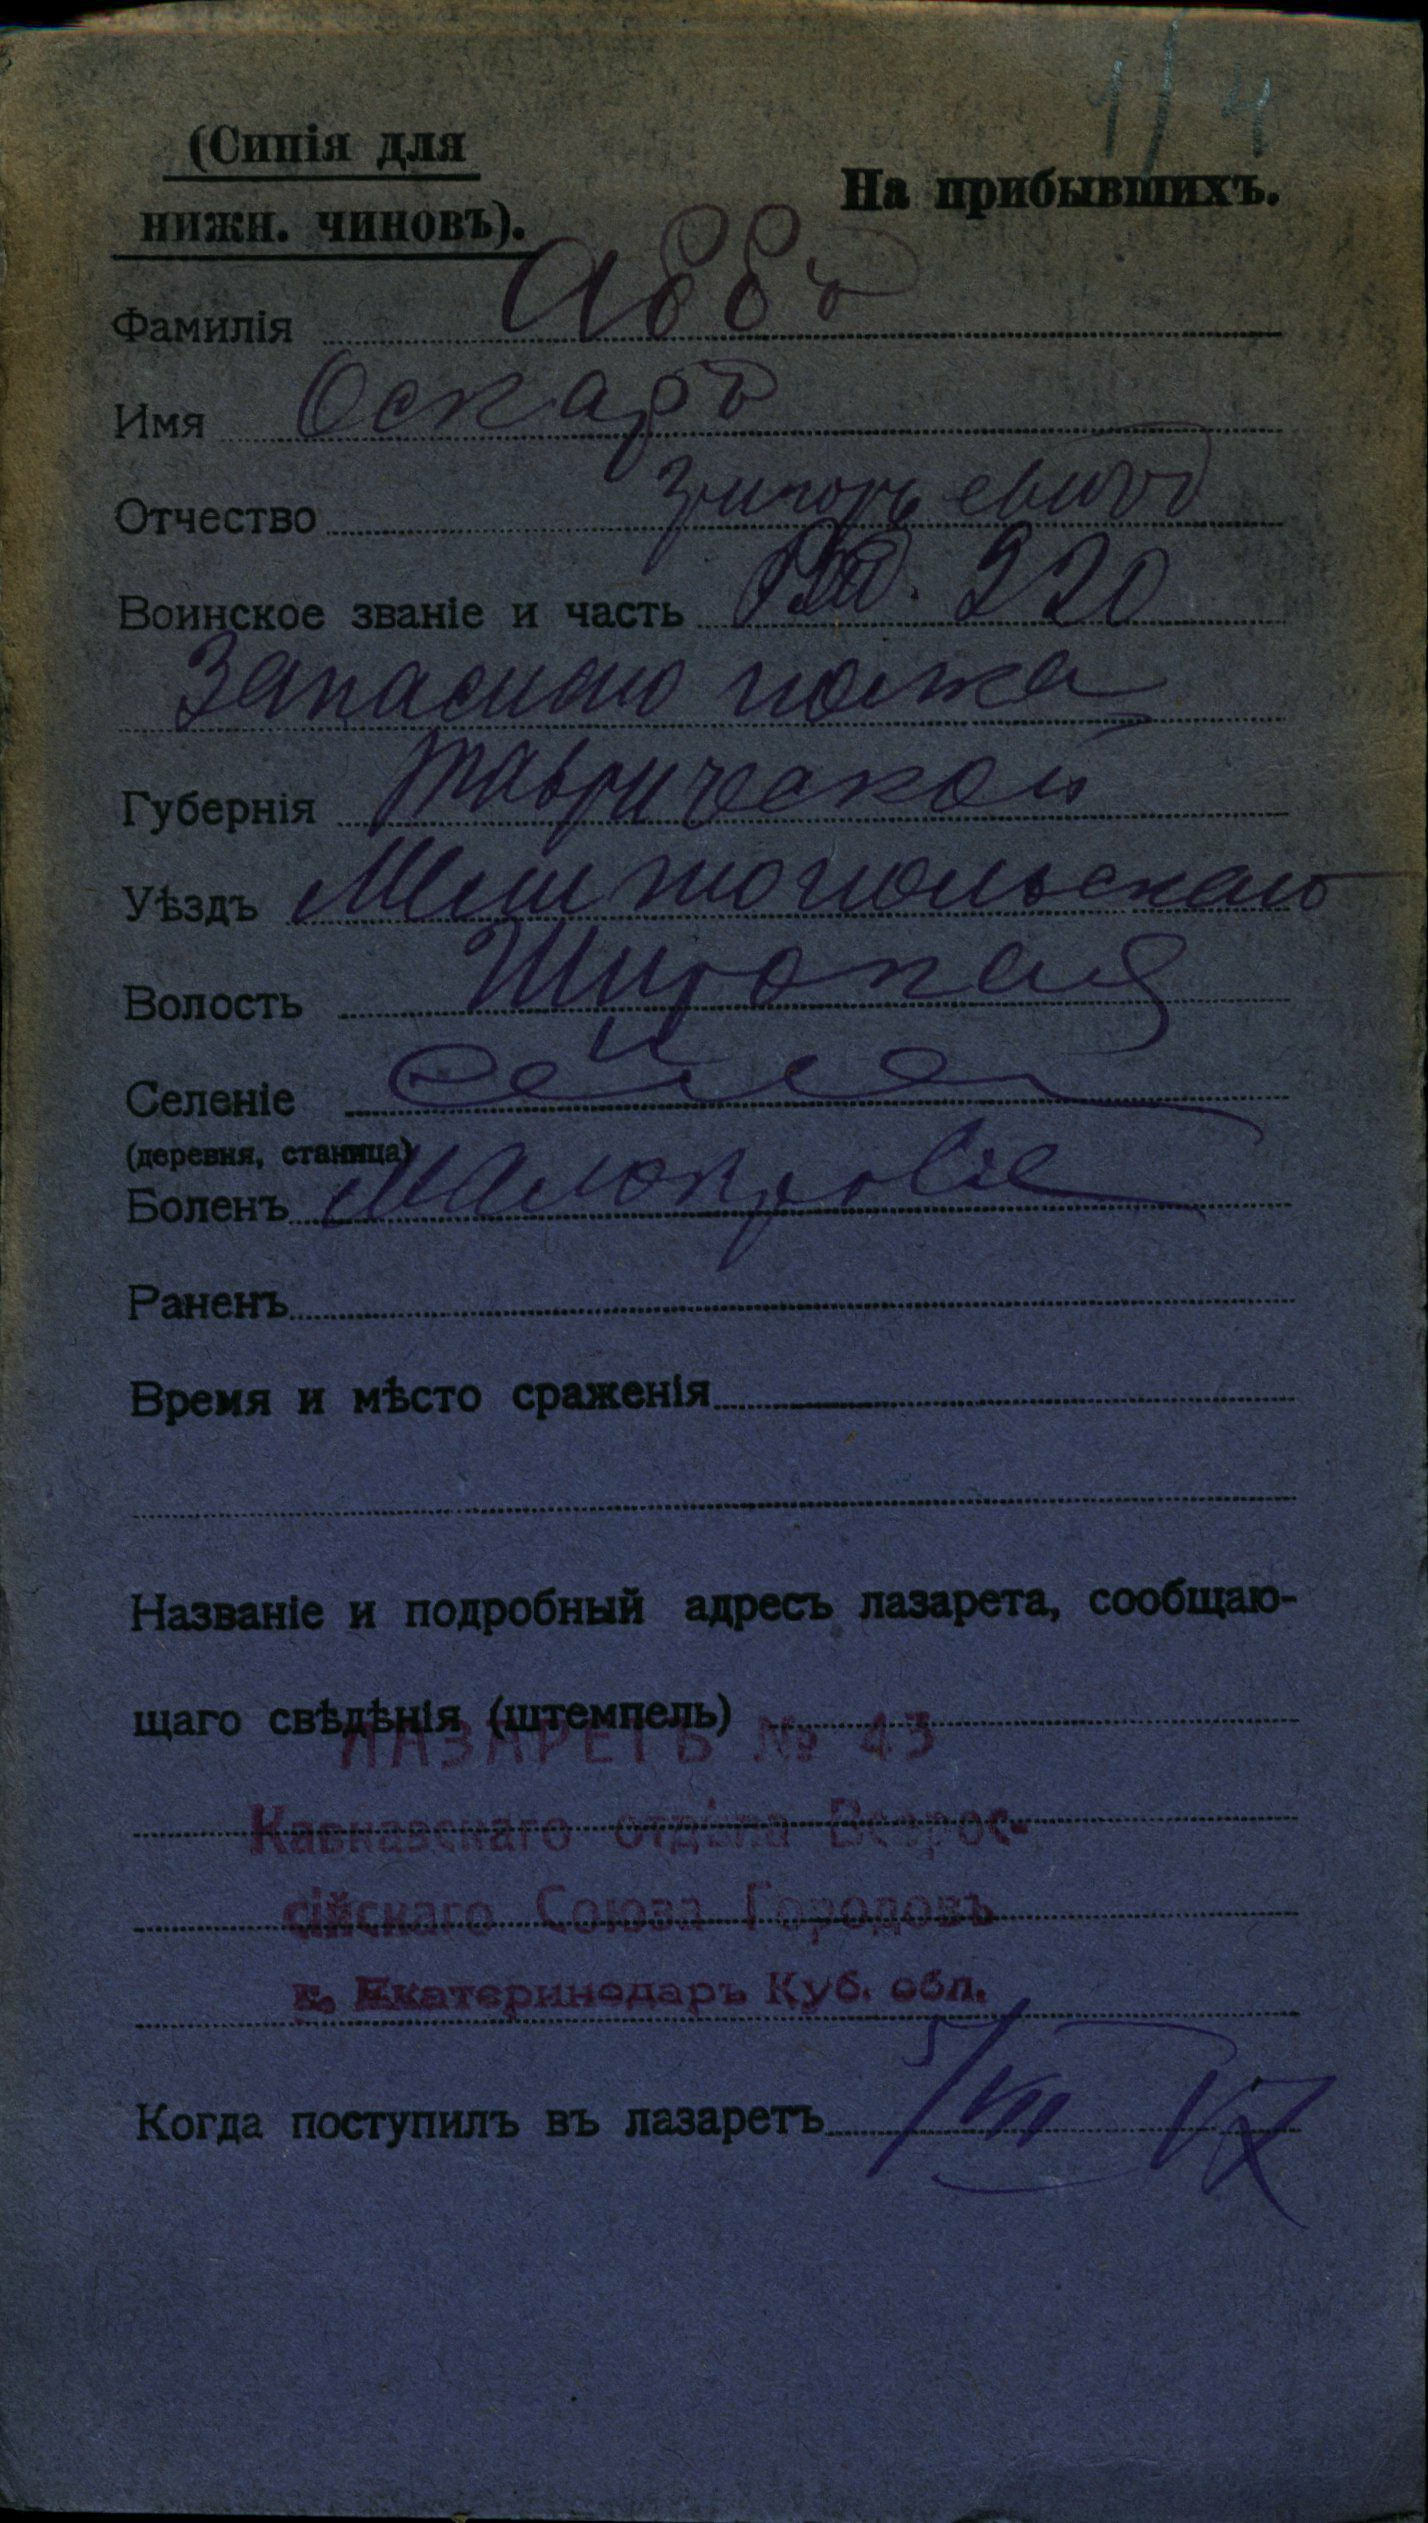 1/4
(Синія для
нижн. чиновъ).
На прибывшихъ.
Фамилія Аббъ
Имя Оскаръ
Отчество Григорьевичъ
Воинское званіе и часть Ряд. 220
Запаснаго полка
Губернія Таврической
Уѣздъ Мелитопольскаго
Волость Широкая
Селеніе
(деревня, станица)
Боленъ Малокровіе
Раненъ
Время и мѣсто сраженія
Названіе и подробный адресъ лазарета, сообщаю-
щаго свѣдѣнія (штемпель)
ЛАЗАРЕТЪ № 43
Кавказскаго отдѣла Всерос-
сійскаго Союза Городовъ
г. Екатеринодаръ Куб. обл.
Когда поступилъ въ лазаретъ 5/VII 17